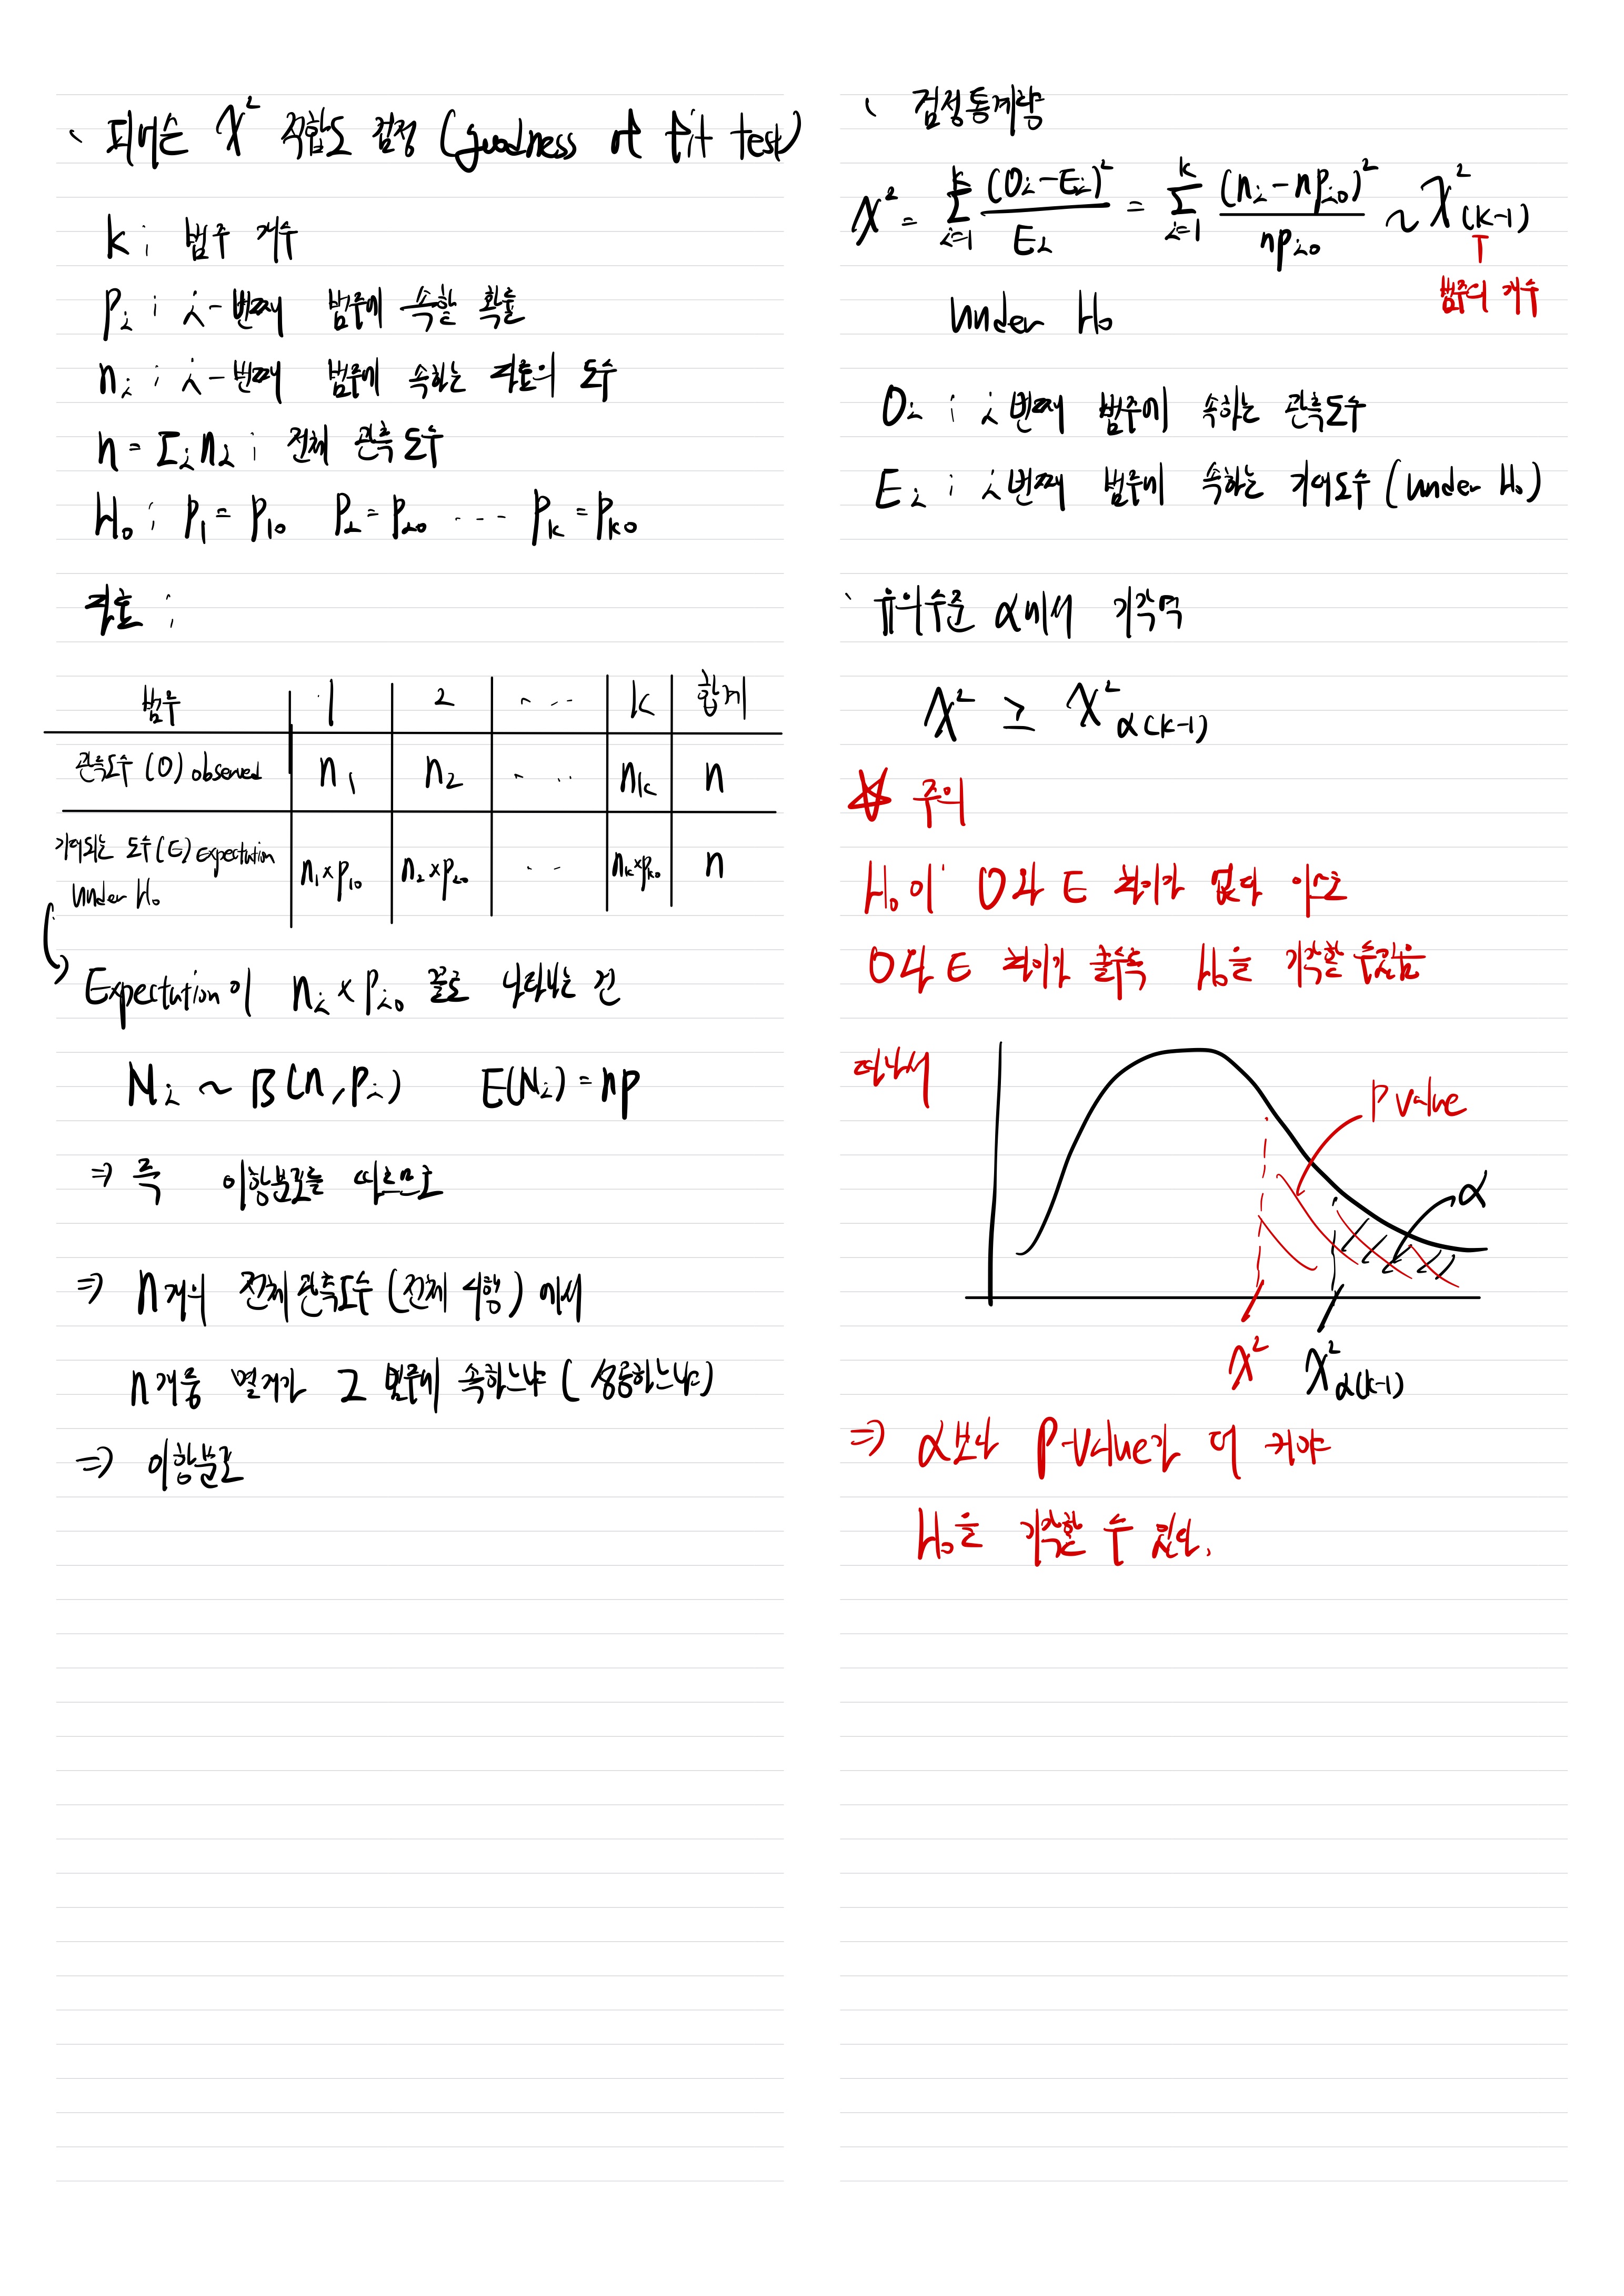 피어슨 χ² 적합도 검정 (goodness of fit test)
k : 범주 개수
Pᵢ : i-번째 범주에 속할 확률
nᵢ : i-번째 범주에 속하는 자료의 도수
n = Σᵢnᵢ : 전체 관측 도수
H₀ : P₁ = P₁₀ P₂ = P₂₀ ---- Pₖ = Pₖ₀
자료 :
범주 1 2 ---- k 합계
관측도수 (O) observed n₁ n₂ ---- nₖ n
기대되는 도수 (E) Expectation n₁×P₁₀ n₂×P₂₀ -- nₖ×Pₖ₀ n
under H₀
Expectation이 nᵢ × Pᵢ₀ 꼴로 나타나는 건
Nᵢ ~ B(n, Pᵢ) E(Nᵢ) = np
⇒ 즉 이항분포를 따르므로
⇒ n개의 전체 관측도수 (전체 시행) 에서
n개중 몇개가 그 범주에 속하느냐 (성공하느냐)
⇒ 이항분포
검정통계량
χ² = Σᵢ₌₁ᵏ (Oᵢ-Eᵢ)²/Eᵢ = Σᵢ₌₁ᵏ (nᵢ-npᵢ₀)²/npᵢ₀ ~ χ²(k-1)
범주의 개수
under H₀
Oᵢ : i 번째 범주에 속하는 관측도수
Eᵢ : i 번째 범주에 속하는 기대도수 (under H₀)
유의수준 α에서 기각역
χ² ≥ χ²α(k-1)
☆ 주의
H₀이 O와 E 차이가 없다 이므로
O와 E 차이가 클수록 H₀을 기각할 수 있음
따라서
P value
α
χ² χ²α(k-1)
⇒ α보다 P-value가 더 커야
H₀을 기각할 수 있다.